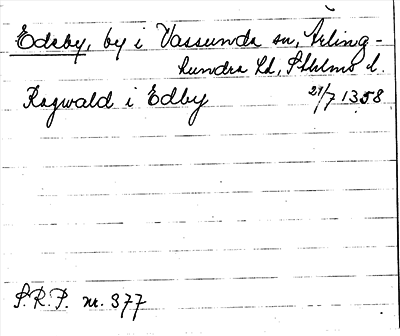 Edeby, by i Vassunda sn, Ärling-
hundra hd, Sthlms l.
Ragwald i Edby 29/7 1358
S.R.P. nr. 377